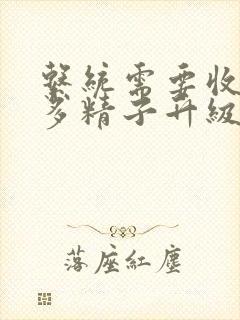 系統需要收
多精子升級
落座紅塵